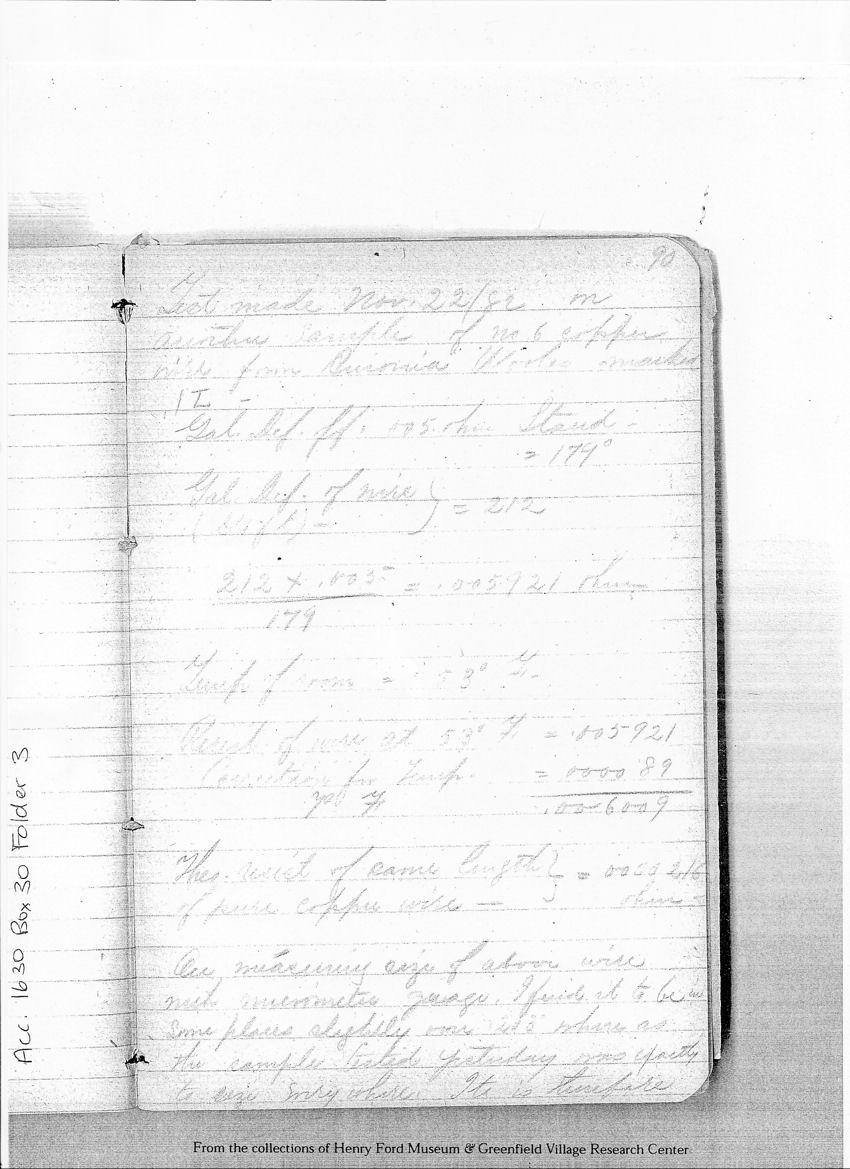 90
Test made Nov. 22/82 on
another sample of no 6 copper
wire from Ansonia Works marked
I
Gal. Def. ff. .005 ohm Stand -
= 179°
Gal. Def. of wire } = 212
212 × .005 = .005921 ohm
179
Temp of room = 53° F.
Resist of wire at 53° F. = .005921
Correction for Temp. = .000089
F. .006009
Theo. resist of same length } =
of pure copper wire — ohm -
On measuring size of above wire
with micrometer guage. I find it to be in
some places slightly over where as
the sample tested yesterday was exactly
to size every where. It is therefore
Acc. 1630 Box 30 Folder 3
From the collections of Henry Ford Museum & Greenfield Village Research Center